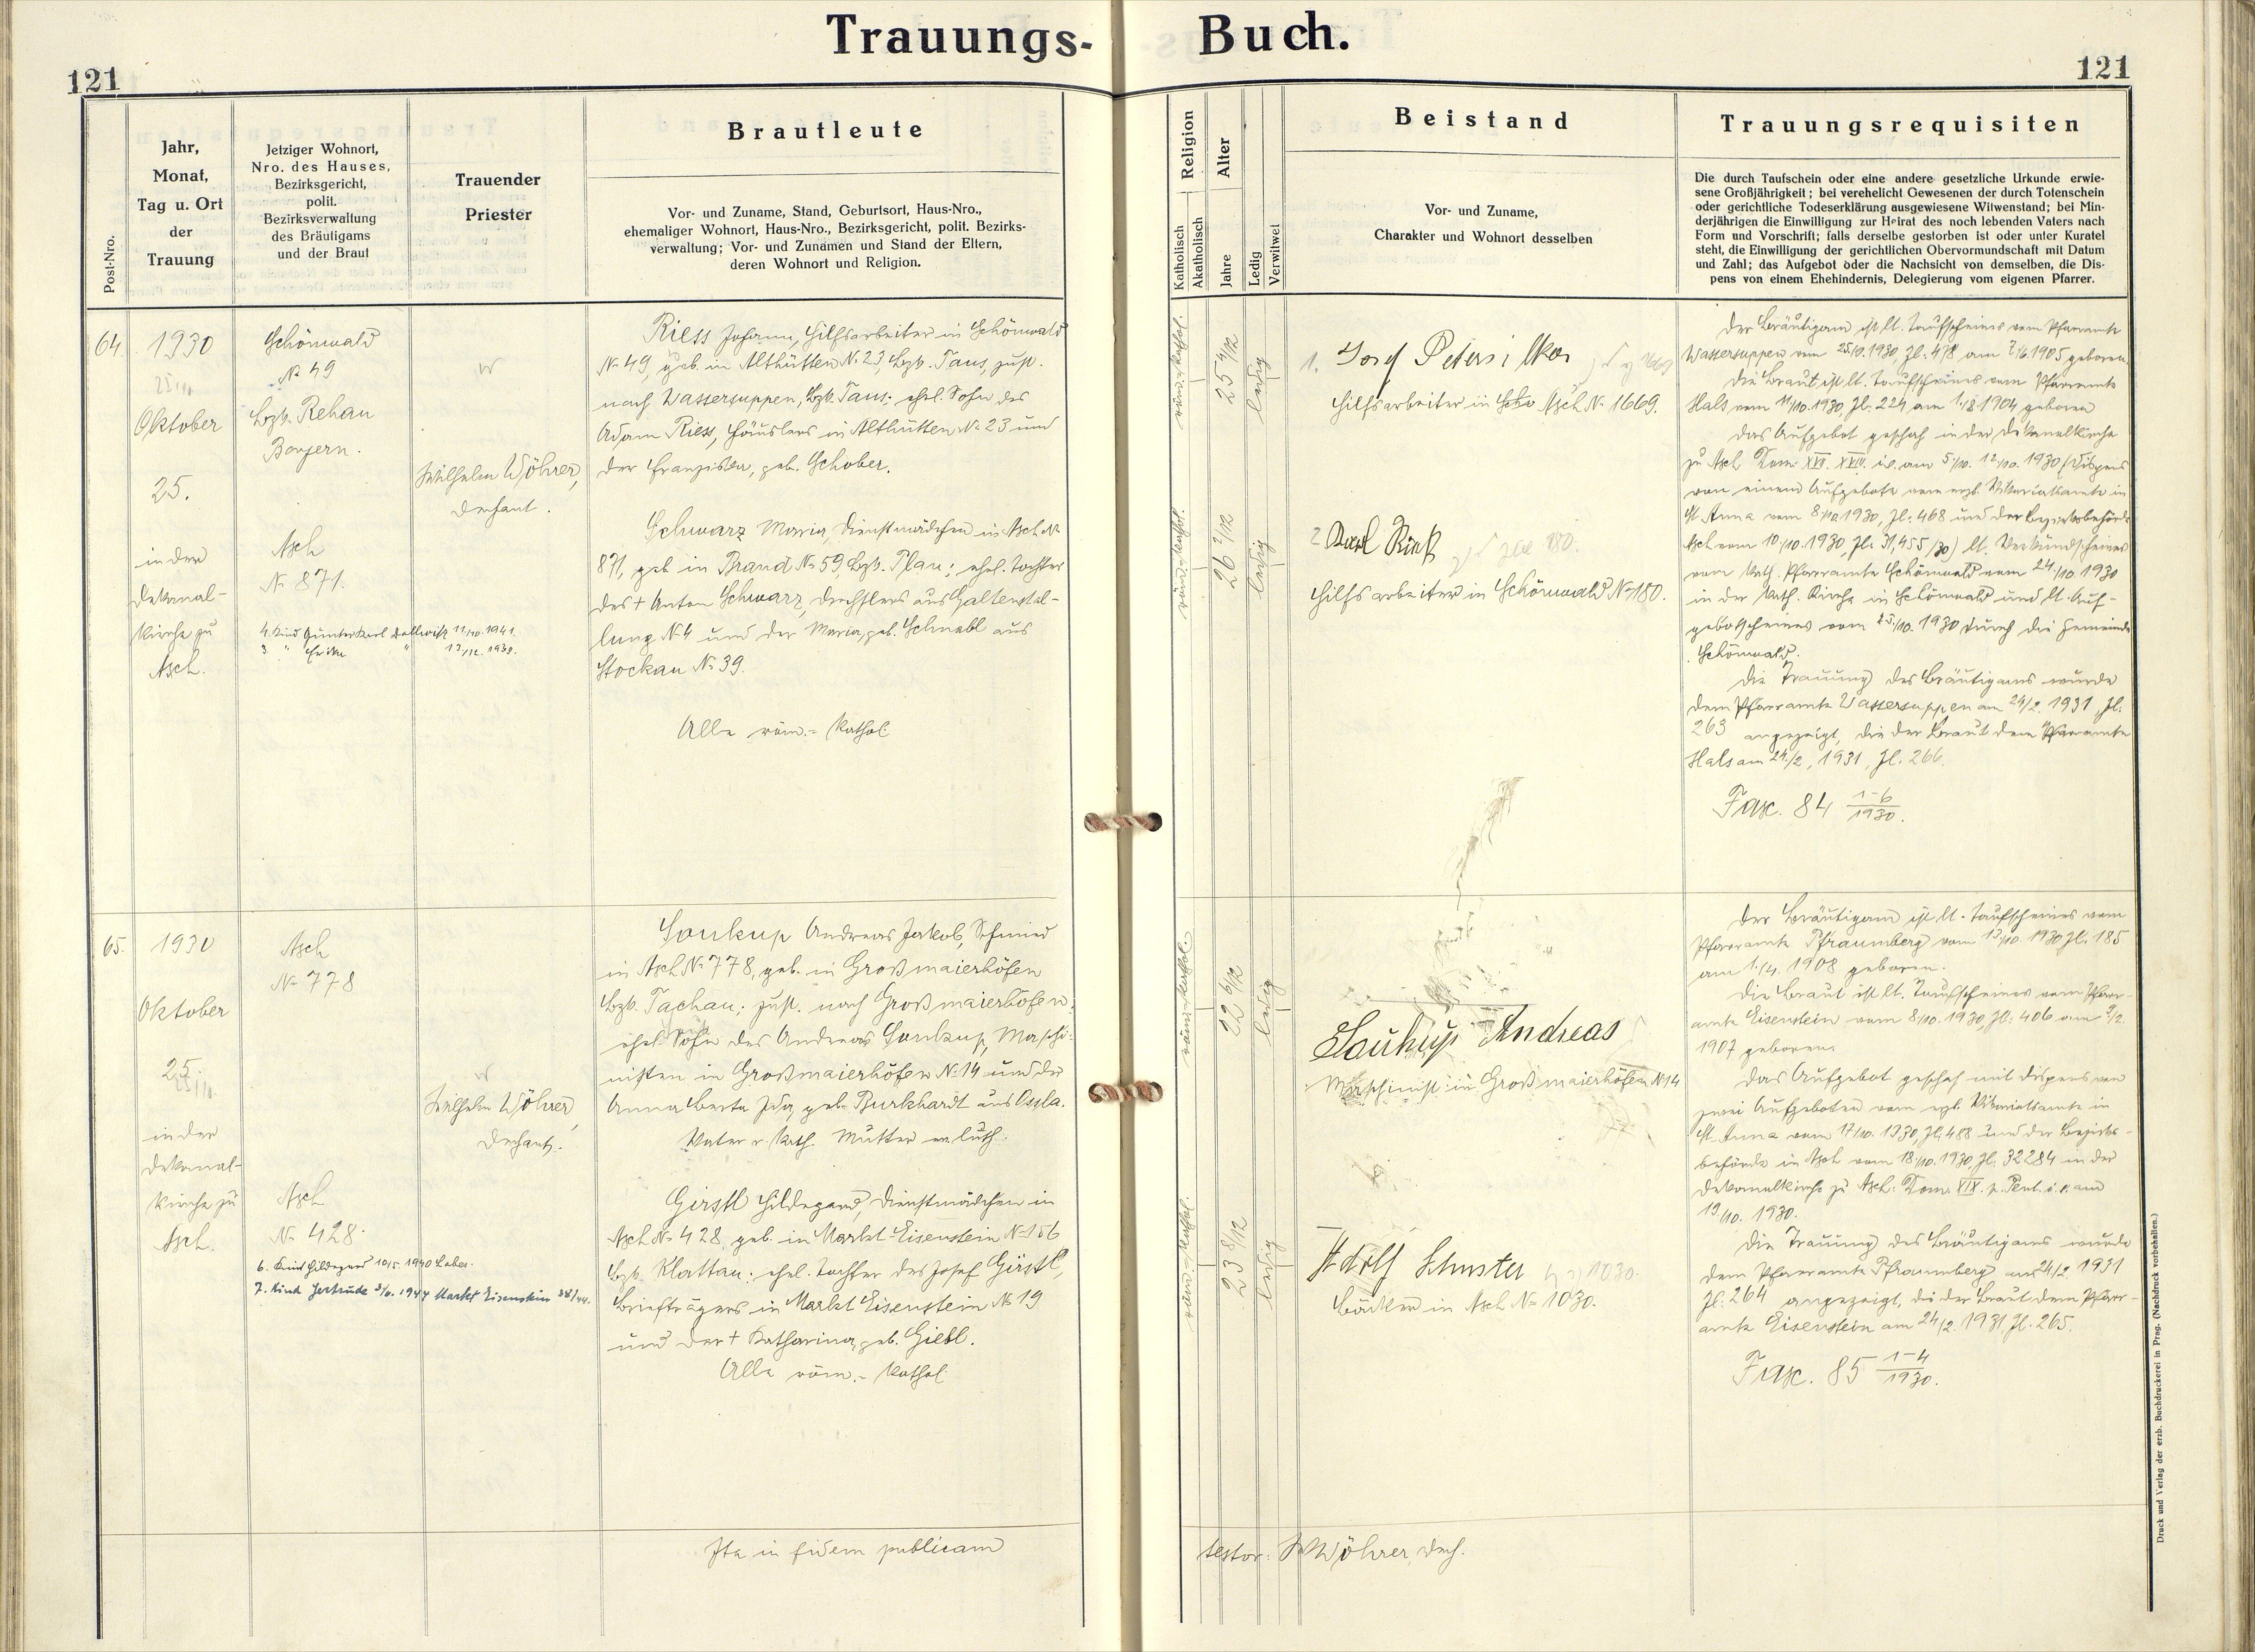 Trauungs- Buch.
121
121
Post-Nro.
Jahr,
Monat,
Tag u. Ort
der
Trauung
Jetziger Wohnort,
Nro. des Hauses,
Bezirksgericht,
polit.
Bezirksverwaltung
des Bräutigams
und der Braut
Trauender
Priester
Brautleute
Vor- und Zuname, Stand, Geburtsort, Haus-Nro.,
ehemaliger Wohnort, Haus-Nro., Bezirksgericht, polit. Bezirks-
verwaltung; Vor- und Zunamen und Stand der Eltern,
deren Wohnort und Religion.
Religion
Katholisch
Akatholisch
Alter
Jahre
Ledig
Verwitwet
Beistand
Vor- und Zuname,
Charakter und Wohnort desselben
Trauungsrequisiten
Die durch Taufschein oder eine andere gesetzliche Urkunde erwie-
sene Großjährigkeit; bei verehelicht Gewesenen der durch Totenschein
oder gerichtliche Todeserklärung ausgewiesene Witwenstand; bei Min-
derjährigen die Einwilligung zur Heirat des noch lebenden Vaters nach
Form und Vorschrift; falls derselbe gestorben ist oder unter Kuratel
steht, die Einwilligung der gerichtlichen Obervormundschaft mit Datum
und Zahl; das Aufgebot oder die Nachsicht von demselben, die Dis-
pens von einem Ehehindernis, Delegierung vom eigenen Pfarrer.
64.
1930
Oktober
25.
in der
Dekanal-
kirche zu
Asch.
Schönwald
N: 49
Bzk. Rehau
Bayern.
Asch
N: 871.
4. Kind Günter Karl 11/10. 1941.
3. " Erika " 13/12. 1939.
Wilhelm Wöhrer,
Dechant.
Riess Johann, Hilfsarbeiter in Schönwald
N: 49, geb. in Althütten N: 23, Bzk. Taus, zust.
nach Wassersuppen, Bzk. Taus; ehel. Sohn des
Adam Riess, Häuslers in Althütten N: 23 und
der Franziska, geb. Schober.
Schwarz Maria, Dienstmädchen in Asch N:
871, geb. in Brand N: 59, Bzk. Plan; ehel. Tochter
des + Anton Schwarz, Drechslers aus Galtenstal-
lung N: 4 und der Maria, geb. Schnabl aus
Stockau N: 39.
Alle röm.- kathol.
röm.-kathol.
25 4/12
ledig
röm.-kathol.
26 2/12
ledig
1. Josef Petersilka
Hilfsarbeiter in Asch N: 1669.
2 Karl Rieß
Hilfsarbeiter in Schönwald N: 180.
Der Bräutigam ist lt. Taufscheines vom Pfarramte
Wassersuppen vom 25/9. 1930, Zl: 478 am 7/6. 1905 geboren.
Die Braut ist lt. Taufscheines vom Pfarramte
Hals vom 11/10. 1930, Zl. 224 am 1./8. 1904 geboren
Das Aufgebot geschah in der Dekanalkirche
zu Asch Dom. XVII. XVIII. i.e. am 5/10. 12/10. 1930 (Dispens
von einem Aufgebote vom erzb. Vikariatsamte in
St. Anna vom 8/10. 1930, Zl: 468 und der Bezirksbehörde
Asch vom 10/10. 1930, Zl: 31,455/30) lt. Verkündscheines
vom kath. Pfarramte Schönwald vom 24/10. 1930
in der kath. Kirche in Schönwald und lt. Auf-
gebotscheines vom 25/10. 1930 durch die Gemeinde
Schönwald.
Die Trauung des Bräutigams wurde
dem Pfarramte Wassersuppen am 24/2. 1931, Zl.
263 angezeigt, die der Braut dem Pfarramte
Hals am 24/2. 1931, Zl. 266.
Fasc. 84 1-6/1930.
65.
1930
Oktober
25.
in der
Dekanal-
kirche zu
Asch.
Asch
N: 778
Asch
N: 428.
6. Kind Hildegard 10/5. 1940
7. Kind Gertrude 3/6. 1944 Markt Eisenstein
Wilhelm Wöhrer,
Dechant.
Soukup Andreas Jakob, Schmied
in Asch N: 778, geb. in Großmaierhöfen
Bzk. Tachau; zust. nach Großmaierhöfen;
ehel. Sohn des Andreas Soukup, Maschi-
nisten in Großmaierhöfen N: 14 und der
Anna Berta Ida, geb. Burkhardt aus Ossla.
Vater r. kath. Mutter ev. luth.
Girstl Hildegard, Dienstmädchen in
Asch N: 428, geb. in Markt-Eisenstein N: 156
Bzk. Klattau; ehel. Tochter des Josef Girstl,
Briefträgers in Markt Eisenstein N: 19
und der + Katharina, geb. Giebl.
Alle röm.- kathol.
röm.-kathol.
22 6/12
ledig
röm.-kathol.
23 8/12
ledig
Soukup Andreas
Maschinist in Großmaierhöfen N: 14
Adolf Schuster
Bäcker in Asch N: 1030.
Der Bräutigam ist lt. Taufscheines vom
Pfarramte Pfraumberg vom 13/10. 1930 Zl. 185
am 1./4. 1908 geboren.
Die Braut ist lt. Taufscheines vom Pfarr-
amte Eisenstein vom 8/10. 1930, Zl: 406 am 9/2.
1907 geboren.
Das Aufgebot geschah mit Dispens von
zwei Aufgeboten vom erzb. Vikariatsamte in
St. Anna vom 17/10. 1930, Zl: 488 und der Bezirks-
behörde in Asch vom 18/10. 1930, Zl: 32284 in der
Dekanalkirche zu Asch: Dom. XIX. p. Pent. i.e. am
19/10. 1930.
Die Trauung des Bräutigams wurde
dem Pfarramte Pfraumberg am 24/2. 1931
Zl: 264 angezeigt, die der Braut dem Pfarr-
amte Eisenstein am 24/2. 1931, Zl. 265.
Fasc. 85 1-4/1930.
Ita in fidem publicam
testor: WWöhrer, Dech.
Druck und Verlag der erzb. Buchdruckerei in Prag. (Nachdruck vorbehalten.)